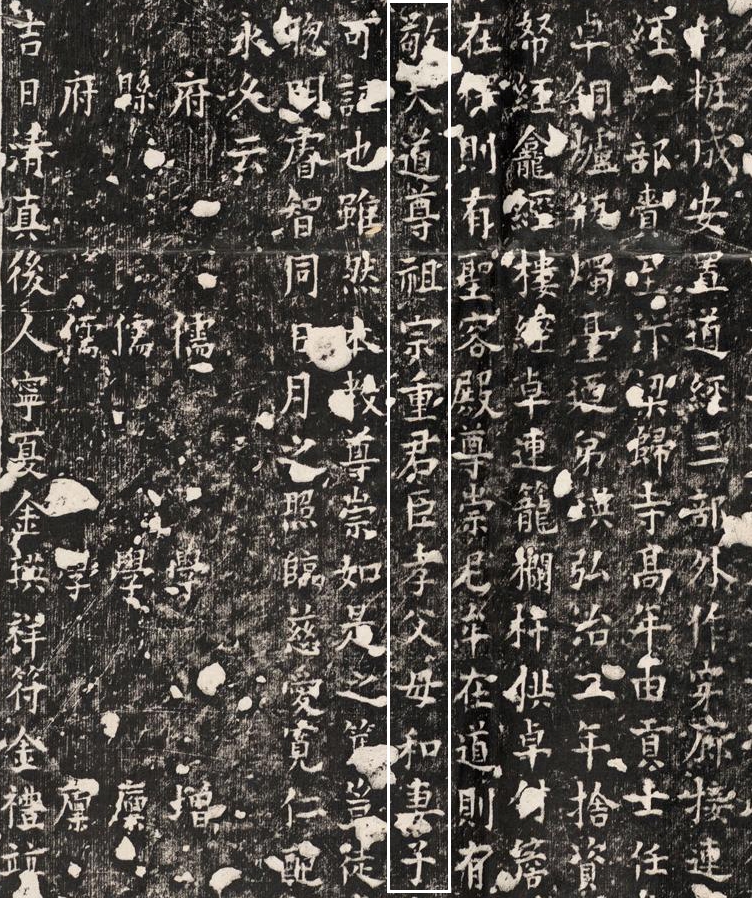 彩粧成安置道經三部外作穿廊接連
經一部賫至汴梁歸寺高年由貢士任
卓銅爐瓶燭臺逈弟瑛弘治二年捨資
帑經龕經樓經卓連籠欄杆供卓付簷
在釋則有聖容殿尊崇尼牟在道則有
敬天道尊祖宗重君臣孝父母和妻子
可證也雖然本教尊崇如是之篤豈徒
聰明睿智同日月之照臨慈愛寬仁配
永久云
府儒學增
縣儒學廩
府儒學廩
吉日清真後人寧夏金瑛祥符金禮竝